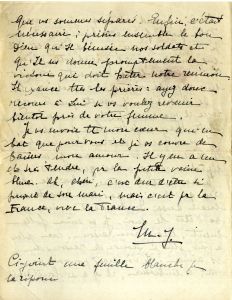 Que nous sommes séparés. Enfin, c'était
nécessaire ; prions ensemble le bon
Dieu qu'Il bénisse nos soldats et
qu'Il nous donne promptement la
victoire qui doit hâter notre réunion
Il exauce les prières : ayez donc
recours à Lui si vous voulez revenir
bientôt près de votre femme.
Je vous envoie mon cœur qui ne
bat que pour vous et je vous couvre de
baisers mon amour. Il y en a un
tendre, pr la petite
Ah, c'est dur d'être si
de son mari, mais c'est pr la
France, vive la France.
M. J.
Ci-joint une feuille blanche pr
la réponse